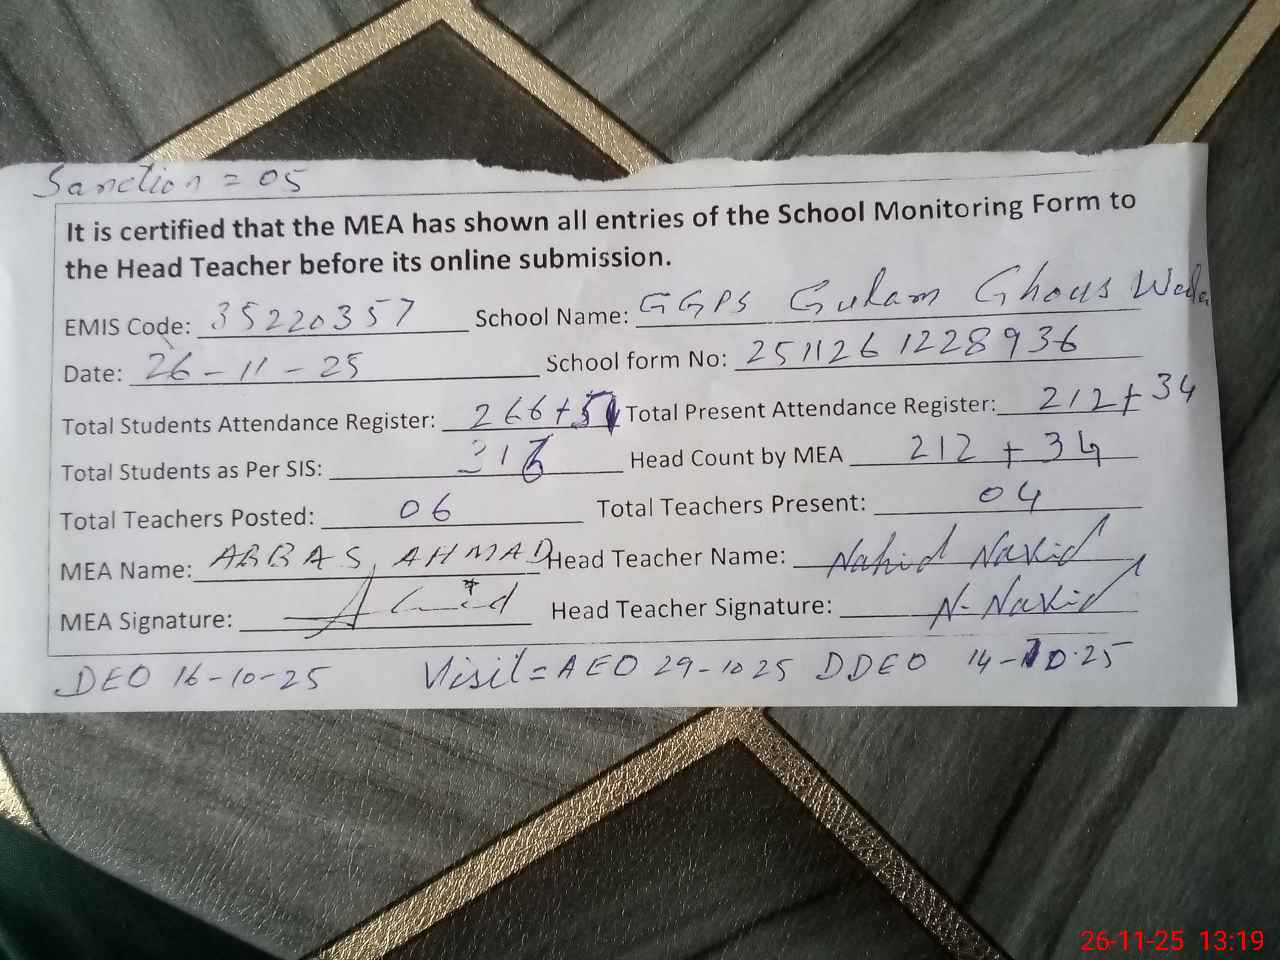 Sanction = 05
It is certified that the MEA has shown all entries of the School Monitoring Form to
the Head Teacher before its online submission.
EMIS Code: 35220357 School Name: GGPS Gulam Ghous Wala
Date: 26-11-25 School form No: 2511261228936
Total Students Attendance Register: 266+51 Total Present Attendance Register: 212+34
Total Students as Per SIS: 316 Head Count by MEA 212 + 34
Total Teachers Posted: 06 Total Teachers Present: 04
MEA Name: ABBAS AHMAD Head Teacher Name: Nahid Navid
MEA Signature: Head Teacher Signature: N- Navid
DEO 16-10-25 Visit = AEO 29-10 25 DDEO 14-10.25
26-11-25 13:19